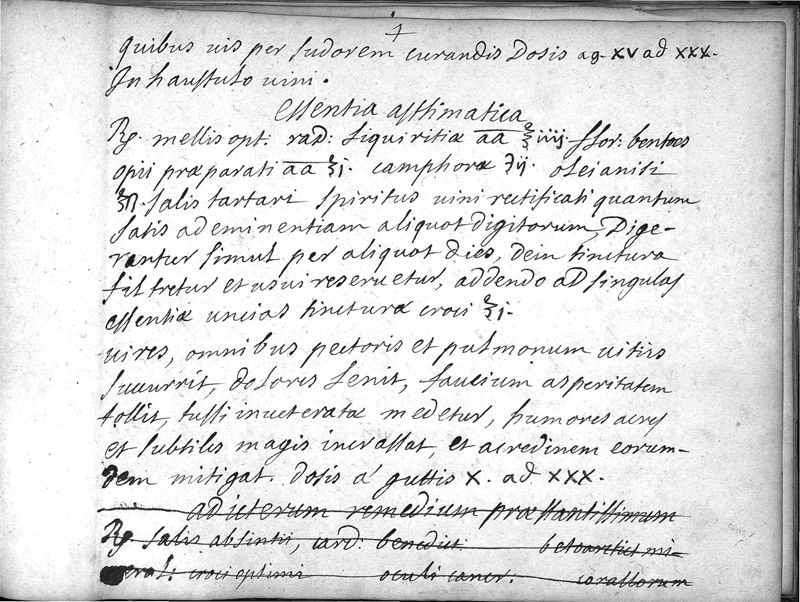 quibus uis per sudorem curandis Dosis ag. XV ad XXX.
In haustulo uini.
Essentia asthmatica
℞. mellis opt: rad: Liquiritiæ aa ℥iiij. flor: bentoes
opii præparati aa ℥j. camphoræ ʒij. olei anisi
℥ß. salis tartari spiritus uini rectificati quantum
satis ad eminentiam aliquot digitorum, Dige-
rantur simul per aliquot dies, dein tinctura
filtretur et usui reseruetur, addendo ad singulas
essentiæ uncias tincturæ croci ℥j.
uires, omnibus pectoris et pulmonum uitiis
succurrit, dolores lenit, faucium asperitatem
tollit, tussi inueteratæ medetur, humores acres
et subtiles magis incrassat, et acredinem eorum-
dem mitigat. dosis a' guttis X. ad XXX.
ad icterum remedium præstantissimum
℞ salis absintii, card: benedict: betoardici mi-
neral: croci optimi oculi cancr: corallorum